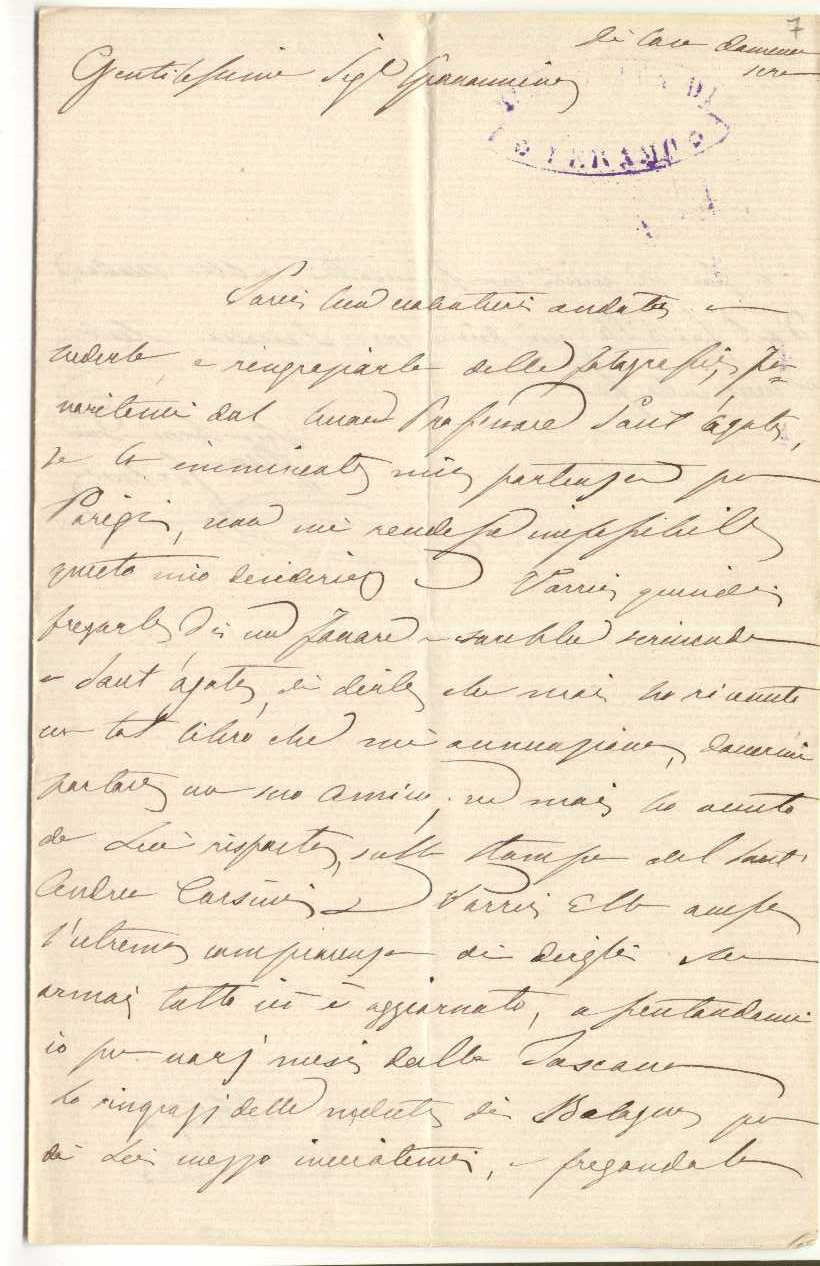 7
di Casa Domenica
sera
Gentilissimo Sigr Giannannina
TERAMO
Sarei ben volentieri andata a
vederla, e ringraziarla delle fotografie, fa=
voritemi dal buon Professore Sant'Agata,
se la imminente mia partenza per
Parigi, non mi rendesse impossibile
questo mio desiderio Vorrei quindi
pregarla di un favore e sarebbe scrivendo
a Sant'Agata, di dirle che mai ho ricevuto
un tal libro che mi annunziava, dovermi
portare un suo amico, ne mai ho avuto
da Lui risposta, sulla stampa del Sant'
Andrea Corsini Vorrei Ella avesse
l'estrema compiacenza di dirgli che
ormai tutto ciò è aggiornato, assentandomi
io per varj mesi dalla Toscana
Lo ringrazj delle vedute di Bologna per
di Lei mezzo inviatemi, e pregandola